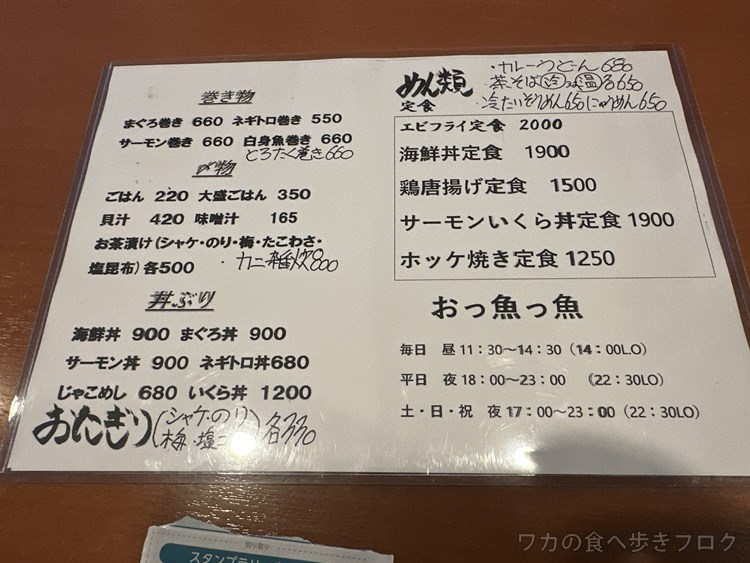 巻き物
まぐろ巻き 660 ネギトロ巻き 550
サーモン巻き 660 白身魚巻き 660
とろたく巻き 660
〆物
ごはん 220 大盛ごはん 350
貝汁 420 味噌汁 165
お茶漬け(シャケ・のり・梅・たこわさ・
塩昆布)各500
・カニ雑炊800
丼ぶり
海鮮丼 900 まぐろ丼 900
サーモン丼 900 ネギトロ丼680
じゃこめし 680 いくら丼 1200
おにぎり(シャケ・のり
梅・塩)各330
めん類
・カレーうどん680
・茶そば冷温各650
・冷たいそうめん650にゅうめん650
定食
エビフライ定食 2000
海鮮丼定食 1900
鶏唐揚げ定食 1500
サーモンいくら丼定食 1900
ホッケ焼き定食 1250
おっ魚っ魚
毎日 昼 11:30~14:30(14:00LO)
平日 夜 18:00~23:00 (22:30LO)
土・日・祝 夜 17:00~23:00(22:30LO)
切り取り
スタンプラリー
ワカの食べ歩きブログ